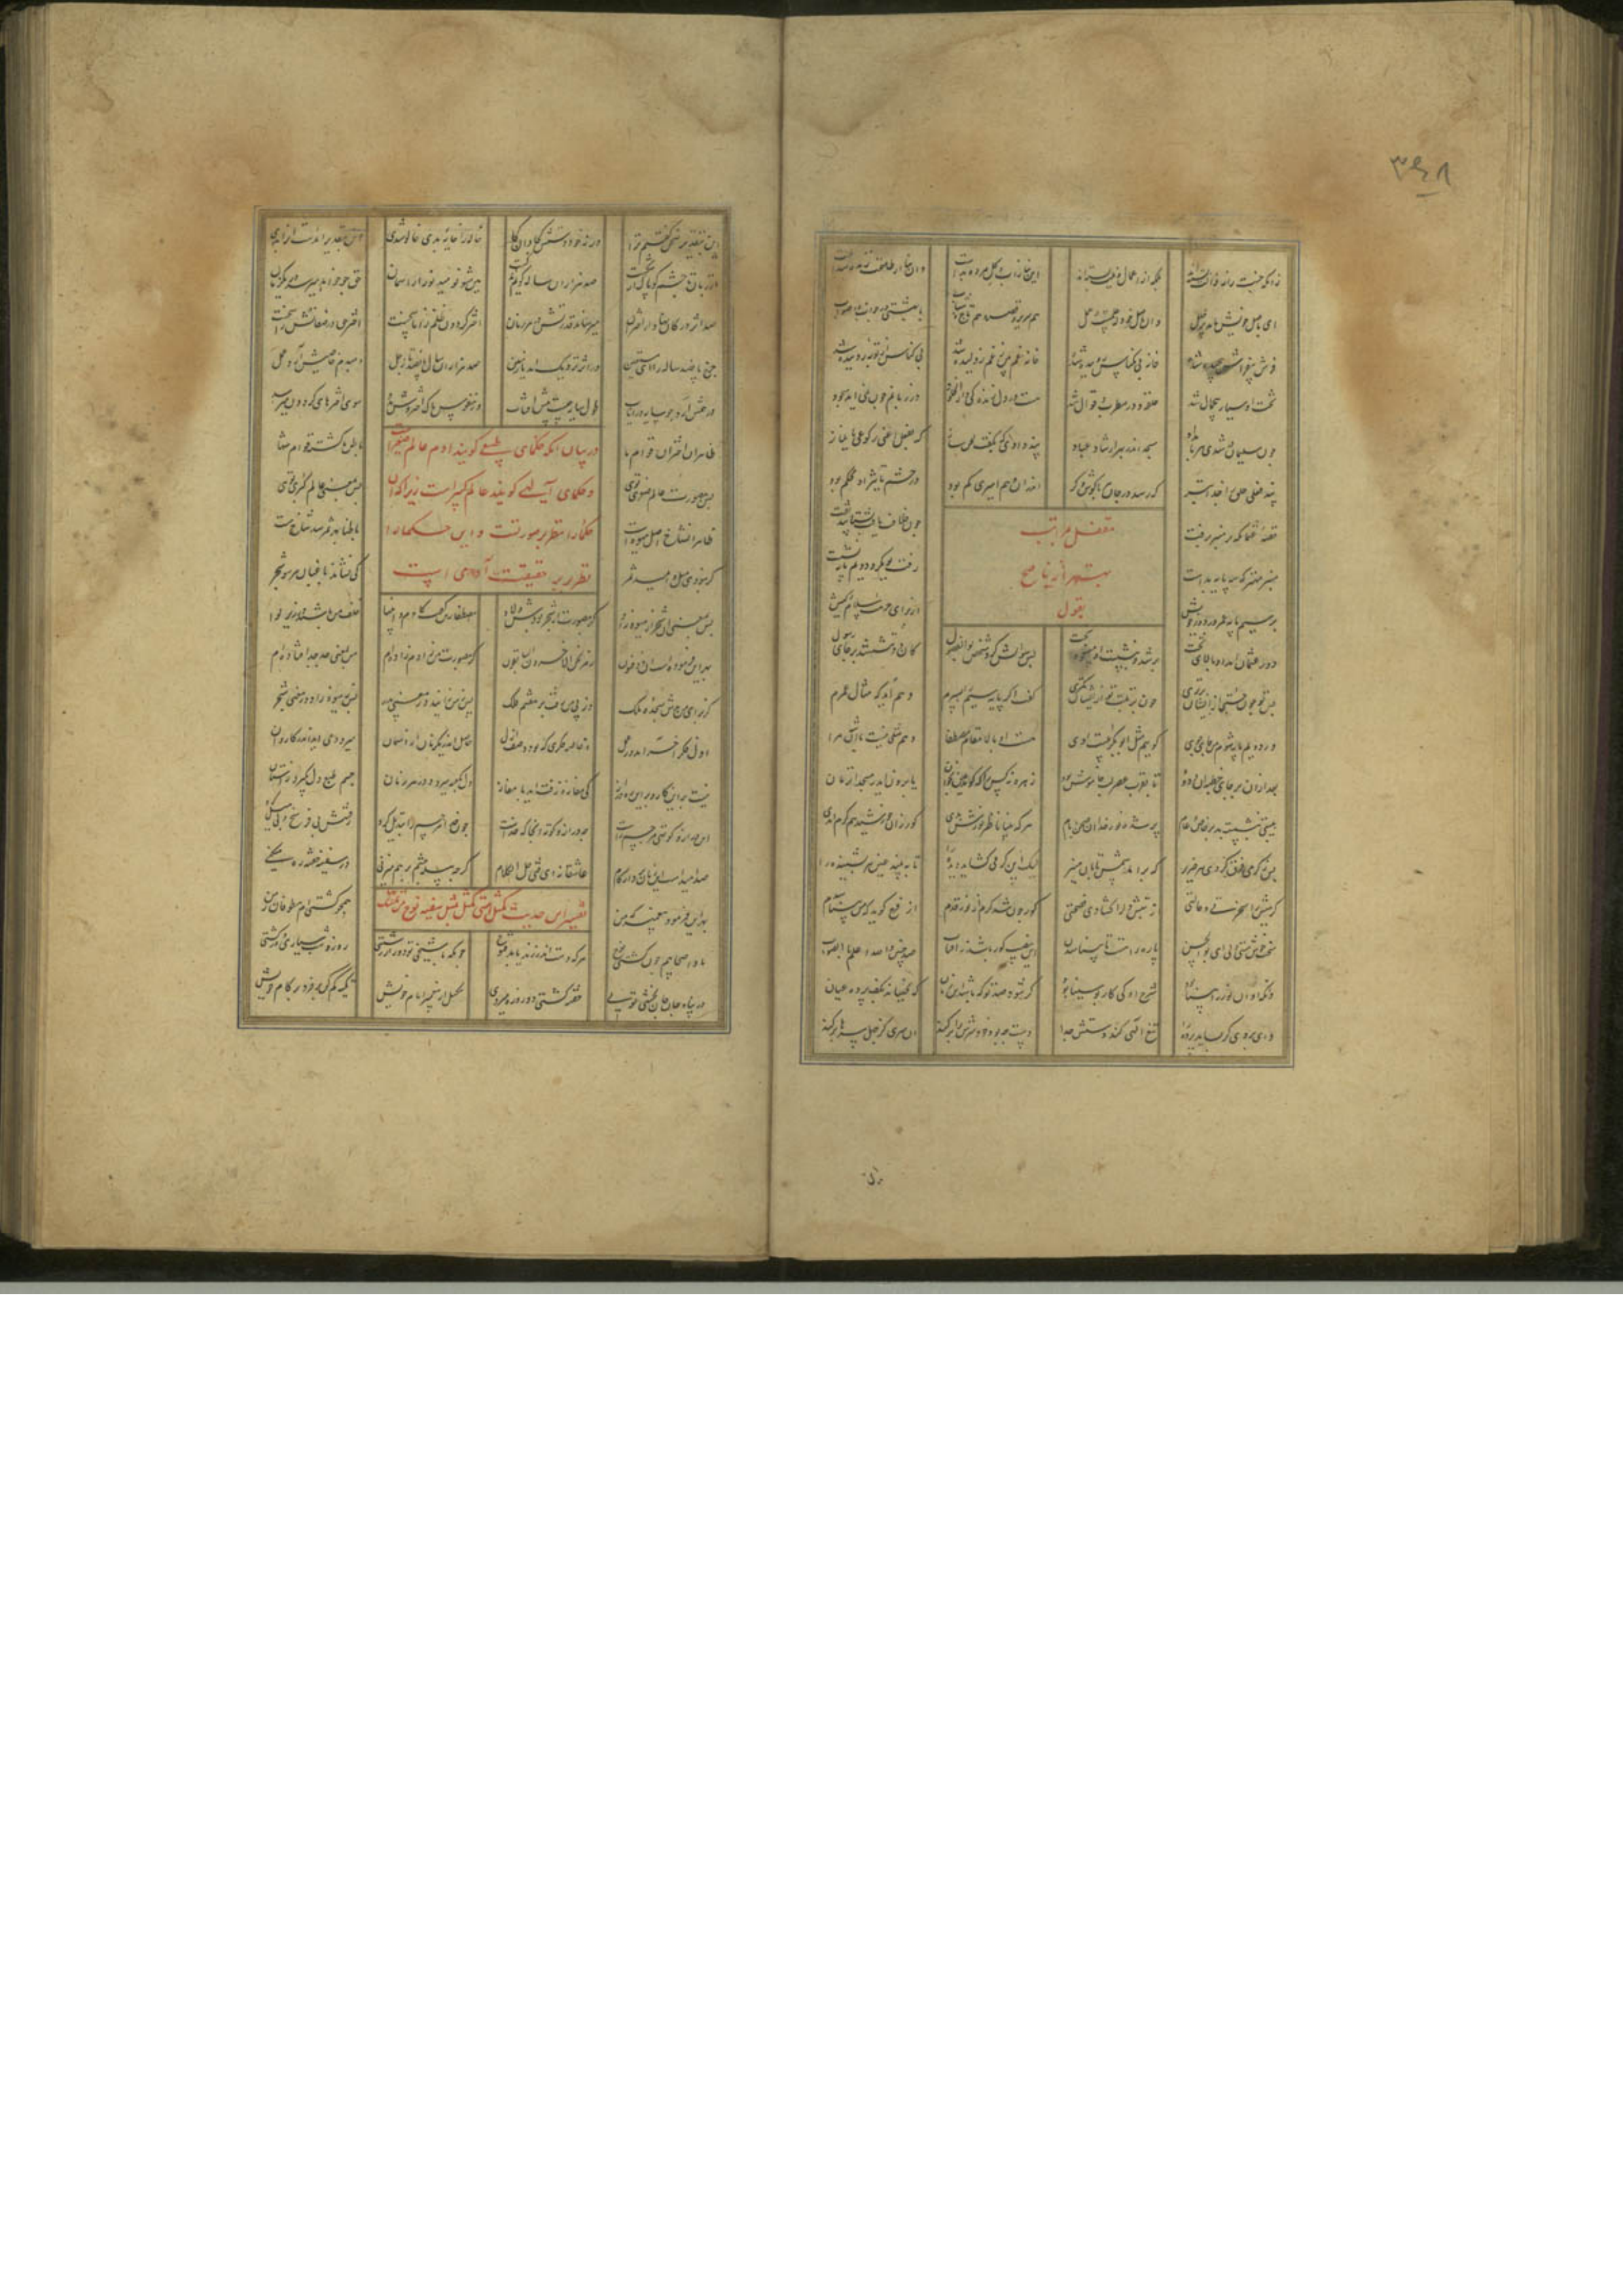 ٣٤٨
زانکه جنت را نه ز آلت بسته اند بلکه از اعمال و نیت بسته اند این بنا ز آب و گل مرده بدست وان بنا از طاعت زنده شدست
این باصل خویش ماند پر خلل وان باصل خود که علمست و عمل هم سریر و قصر و هم تاج و ثیاب با بهشتی در سوال و در جواب
فرش بی فراش پیچیده شود خانه بی مکناس روبیده شود خانه دل بین ز غم ژولیده شد بی کناس از توبه روبیده شد
تخت او سیار بی حمال شد حلقه و در مطرب و قوال شد هست در دل زندگی دار الخلود در زبانم چون نمی آید چه سود
چون سلیمان در شدی هر بامداد مسجد اندر بهر ارشاد عباد پند دادی گه بگفت و لحن و ساز گه بفعل اعنی رکوعی یا نماز
پند فعلی خلق را جذاب تر که رسد در جان هر با گوش و کر اندران وهم امیری کم بود در حشم تاثیر آن محکم بود
بهتر از ناصح
بقول
قصه عثمان که بر منبر برفت چون خلافت یافت بشتابید تفت
منبر مهتر که سه پایه بدست رفت بوبکر و دویم پایه نشست
بر سیم پایه عمر در دور خویش از برای حرمت اسلام و کیش
دور عثمان آمد او بالای تخت بر شد و بنشست آن بخت پس سوالش کرد شخصی بو الفضول کان دو ننشستند بر جای رسول
پس تو چون جستی ازیشان برتری چون برتبت تو ازیشان کمتری گفت اگر پایه سیم را بسپرم وهم آید که مثال عمرم
بر دویم پایه شوم من جای جوی گویی مثل ابوبکرست اوی هست این بالا مقام مصطفا وهم مثلی نیست با آن شه مرا
بعد ازان بر جای خطبه آن ودود تا بقرب عصر لب خاموش بود زهره نه کس را که گوید هین بخوان یا برون آید ز مسجد آن زمان
هیبتی بنشسته بد بر خاص و عام پر شده نور خدا آن صحن و بام هر که بینا ناظر نورش بدی کور زان خورشید هم گرم آمدی
لیک این گرمی گشاید دیده را تا ببیند عین هر بشنیده را
گرمیش را ضجرتی و حالتی زان تبش دل را گشادی فسحتی کور چون شد گرم از نور قدم از فرح گوید که من بینا شدم
سخت خوش مستی ولی ای بو الحسن پاره راهست تا بینا شدن این نصیب کور باشد ز آفتاب صد چنین والله اعلم بالصواب
وانکه او آن نور را بینا بود شرح او کی کار بوسینا بود گر شود صد تو که باشد این زبان که بجنباند بکف پرده عیان
وای بر وی گر بساید پرده را تیغ اللهی کند دستش جدا دست چه بود خود سرش را بر کند آن سری کز جهل سرها بر کند
این
این بتقدیر سخن گفتم ترا ور نه خود دستش کجا و آن کجا خاله را خایه بدی خالو شدی این بتقدیر آمدست ار او بدی
از زبان تا چشم کو پاک از شکست صد هزاران ساله گویم هین مشو نومید نور از آسمان حق چو خواهد میرسد در یک زمان
صد اثر در کانها از اختران میرساند قدرتش در هر زمان اختر گردون ظلم را ناسخست اختر حق در صفاتش راسخست
چرخ پانصد ساله راه ای مستعین در اثر نزدیک آمد با زمین سه هزاران سال و پانصد تا زحل دم بدم خاصیتش آرد عمل
در همش آرد چو سایه در ایاب طول سایه چیست پیش آفتاب وز نفوس پاک اختروش مدد سوی اخترهای گردون میرسد
ظاهر آن اختران قوام ما باطن ما گشته قوام سما
در بیان آنکه حکمای طبیعی گویند آدم عالم صغریست
و حکمای آلهی گویند عالم کبیر است زیرا که آن
حکما را نظر بر صورتست و این حکما را
نظر بر حقیقت آدمی است
پس بصورت عالم صغری توی پس بمعنی عالم کبری توی
ظاهر آن شاخ اصل میوه است باطنا بهر ثمر شد شاخ هست
گر نبودی میل و امید ثمر کی نشاندی باغبان هر سو شجر
پس بمعنی آن شجر از میوه زاد گر بصورت از شجر بودش ولاد مصطفی زین گفت کادم و انبیا خلف من باشند در زیر لوا
بهر این فرموده است آن ذو فنون رمز نحن الاخرون السابقون گر بصورت من ز آدم زاده ام من بمعنی جد جد افتاده ام
کز برای من بدش سجده ملک وز پی من رفت بر هفتم فلک پس ز من زایید در معنی پدر پس ز میوه زاد در معنی شجر
اول فکر آخر آمد در عمل خاصه فکری که بود وصف ازل حاصل اندر یک زمان از آسمان میرود می آید ایدر کاروان
نیست بر این کاروان این ره دراز کی مفازه زفت آید با مفاز دل بکعبه میرود در هر زمان جسم طبع دل بگیرد ز امتنان
این دراز و کوتهی مر جسم راست چه دراز و کوته آنجا که خداست چون خدا مر جسم را تبدیل کرد رفتنش بی فرسخ و بی میل کرد
صد امید است این زمان بردار گام عاشقانه ای فتی خل الکلام گرچه پیله چشم بر هم میزنی در سفینه خفته ره میکنی
تفسیر این حدیث که مثل امتی کمثل سفینه نوح من تمسک
بهر این فرمود پیغمبر که من همچو کشتی ام بطوفان زمن
ما و اصحابم چون کشتی نوح هر که دست اندر زند یابد فتوح چونکه با شیخی تو دور از زشتی روز و شب سیاری و در کشتی
در پناه جان جان بخشی توی مگسل از پیغمبر ایام خویش تکیه کم کن بر فن و بر کام خویش